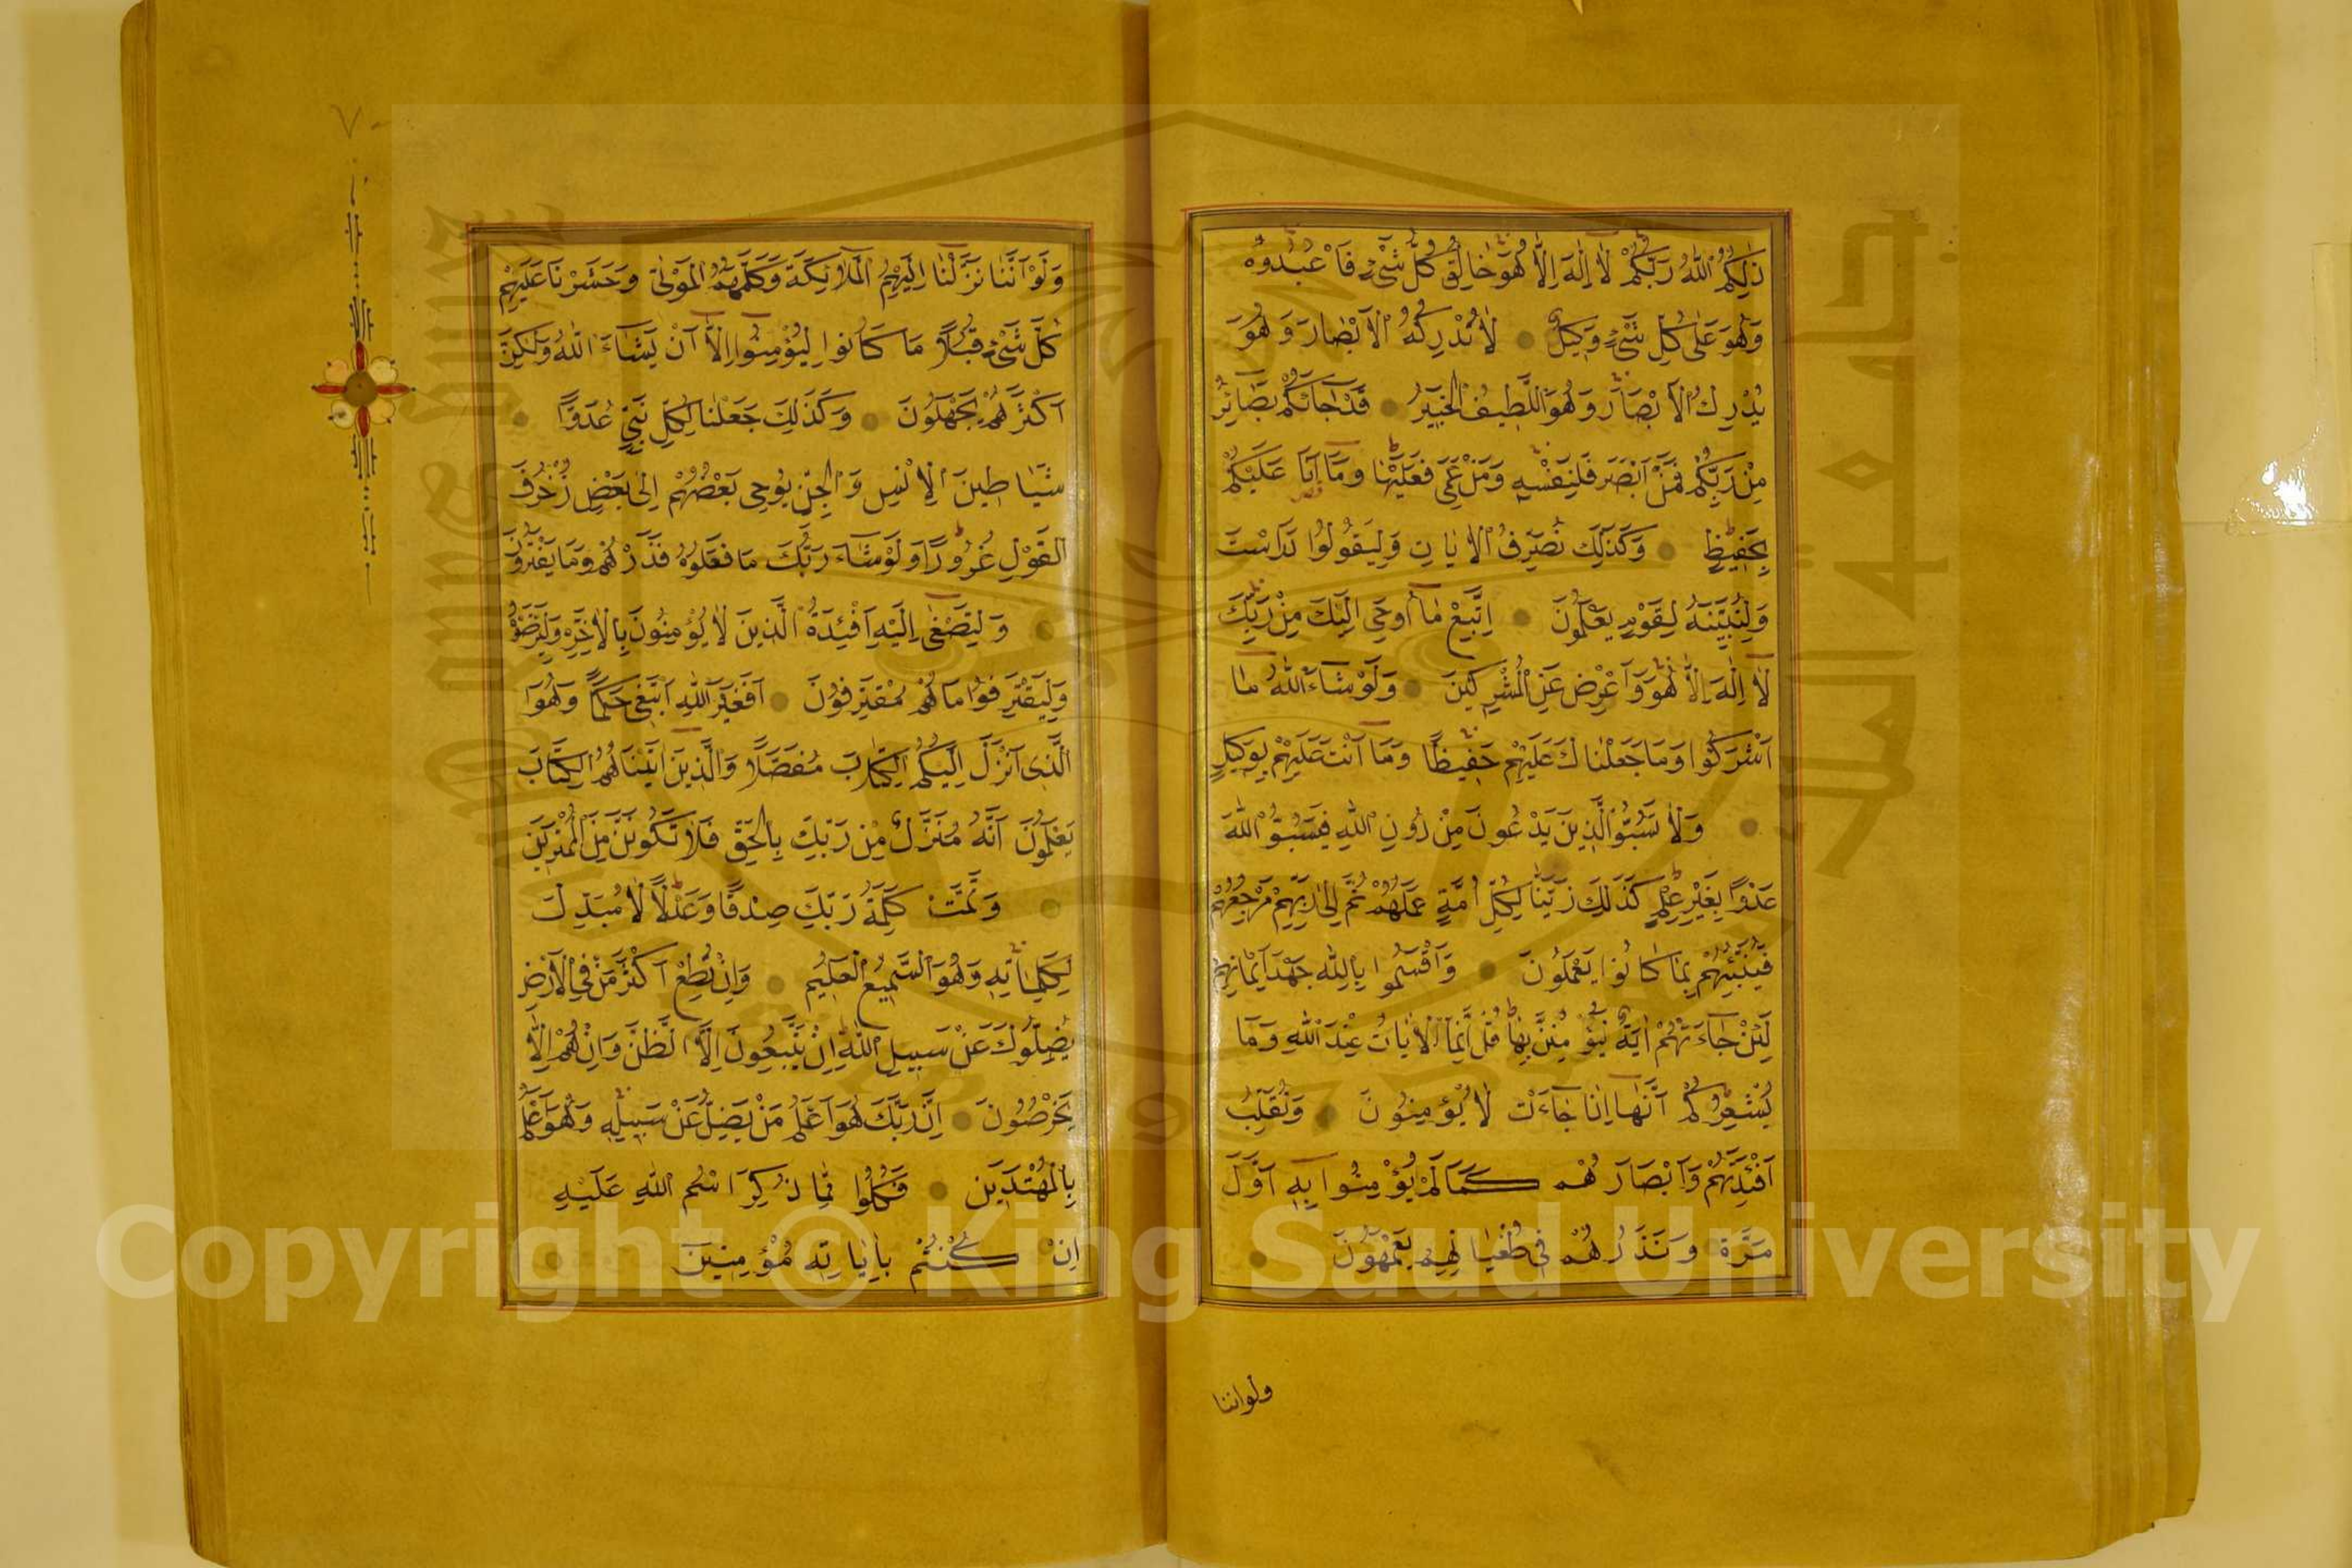 ذٰلِكُمُ اللّٰهُ رَبُّكُمْ لَا اِلٰهَ اِلَّا هُوَ خَالِقُ كُلِّ شَيْءٍ فَاعْبُدُوهُ
وَهُوَ عَلٰى كُلِّ شَيْءٍ وَكِيلٌ لَا تُدْرِكُهُ الْاَبْصَارُ وَهُوَ
يُدْرِكُ الْاَبْصَارَ وَهُوَ اللَّطِيفُ الْخَبِيرُ قَدْ جَاءَكُمْ بَصَائِرُ
مِنْ رَبِّكُمْ فَمَنْ اَبْصَرَ فَلِنَفْسِهِ وَمَنْ عَمِيَ فَعَلَيْهَا وَمَا اَنَا عَلَيْكُمْ
بِحَفِيظٍ وَكَذٰلِكَ نُصَرِّفُ الْاٰيَاتِ وَلِيَقُولُوا دَرَسْتَ
وَلِنُبَيِّنَهُ لِقَوْمٍ يَعْلَمُونَ اِتَّبِعْ مَا اُوحِيَ اِلَيْكَ مِنْ رَبِّكَ
لَا اِلٰهَ اِلَّا هُوَ وَاَعْرِضْ عَنِ الْمُشْرِكِينَ وَلَوْ شَاءَ اللّٰهُ مَا
اَشْرَكُوا وَمَا جَعَلْنَاكَ عَلَيْهِمْ حَفِيظًا وَمَا اَنْتَ عَلَيْهِمْ بِوَكِيلٍ
وَلَا تَسُبُّوا الَّذِينَ يَدْعُونَ مِنْ دُونِ اللّٰهِ فَيَسُبُّوا اللّٰهَ
عَدْوًا بِغَيْرِ عِلْمٍ كَذٰلِكَ زَيَّنَّا لِكُلِّ اُمَّةٍ عَمَلَهُمْ ثُمَّ اِلٰى رَبِّهِمْ مَرْجِعُهُمْ
فَيُنَبِّئُهُمْ بِمَا كَانُوا يَعْمَلُونَ وَاَقْسَمُوا بِاللّٰهِ جَهْدَ اَيْمَانِهِمْ
لَئِنْ جَاءَتْهُمْ اٰيَةٌ لَيُؤْمِنُنَّ بِهَا قُلْ اِنَّمَا الْاٰيَاتُ عِنْدَ اللّٰهِ وَمَا
يُشْعِرُكُمْ اَنَّهَا اِذَا جَاءَتْ لَا يُؤْمِنُونَ وَنُقَلِّبُ
اَفْئِدَتَهُمْ وَاَبْصَارَهُمْ كَمَا لَمْ يُؤْمِنُوا بِهِ اَوَّلَ
مَرَّةٍ وَنَذَرُهُمْ فِي طُغْيَانِهِمْ يَعْمَهُونَ
ولواننا
٧٠
وَلَوْ اَنَّنَا نَزَّلْنَا اِلَيْهِمُ الْمَلَائِكَةَ وَكَلَّمَهُمُ الْمَوْتٰى وَحَشَرْنَا عَلَيْهِمْ
كُلَّ شَيْءٍ قُبُلًا مَا كَانُوا لِيُؤْمِنُوا اِلَّا اَنْ يَشَاءَ اللّٰهُ وَلٰكِنَّ
اَكْثَرَهُمْ يَجْهَلُونَ وَكَذٰلِكَ جَعَلْنَا لِكُلِّ نَبِيٍّ عَدُوًّا
شَيَاطِينَ الْاِنْسِ وَالْجِنِّ يُوحِي بَعْضُهُمْ اِلٰى بَعْضٍ زُخْرُفَ
الْقَوْلِ غُرُورًا وَلَوْ شَاءَ رَبُّكَ مَا فَعَلُوهُ فَذَرْهُمْ وَمَا يَفْتَرُونَ
وَلِتَصْغٰى اِلَيْهِ اَفْئِدَةُ الَّذِينَ لَا يُؤْمِنُونَ بِالْاٰخِرَةِ وَلِيَرْضَوْهُ
وَلِيَقْتَرِفُوا مَا هُمْ مُقْتَرِفُونَ اَفَغَيْرَ اللّٰهِ اَبْتَغِي حَكَمًا وَهُوَ
الَّذِي اَنْزَلَ اِلَيْكُمُ الْكِتَابَ مُفَصَّلًا وَالَّذِينَ اٰتَيْنَاهُمُ الْكِتَابَ
يَعْلَمُونَ اَنَّهُ مُنَزَّلٌ مِنْ رَبِّكَ بِالْحَقِّ فَلَا تَكُونَنَّ مِنَ الْمُمْتَرِينَ
وَتَمَّتْ كَلِمَةُ رَبِّكَ صِدْقًا وَعَدْلًا لَا مُبَدِّلَ
لِكَلِمَاتِهِ وَهُوَ السَّمِيعُ الْعَلِيمُ وَاِنْ تُطِعْ اَكْثَرَ مَنْ فِي الْاَرْضِ
يُضِلُّوكَ عَنْ سَبِيلِ اللّٰهِ اِنْ يَتَّبِعُونَ اِلَّا الظَّنَّ وَاِنْ هُمْ اِلَّا
يَخْرُصُونَ اِنَّ رَبَّكَ هُوَ اَعْلَمُ مَنْ يَضِلُّ عَنْ سَبِيلِهِ وَهُوَ اَعْلَمُ
بِالْمُهْتَدِينَ فَكُلُوا مِمَّا ذُكِرَ اسْمُ اللّٰهِ عَلَيْهِ
اِنْ كُنْتُمْ بِاٰيَاتِهِ مُؤْمِنِينَ
Copyright © King Saud University